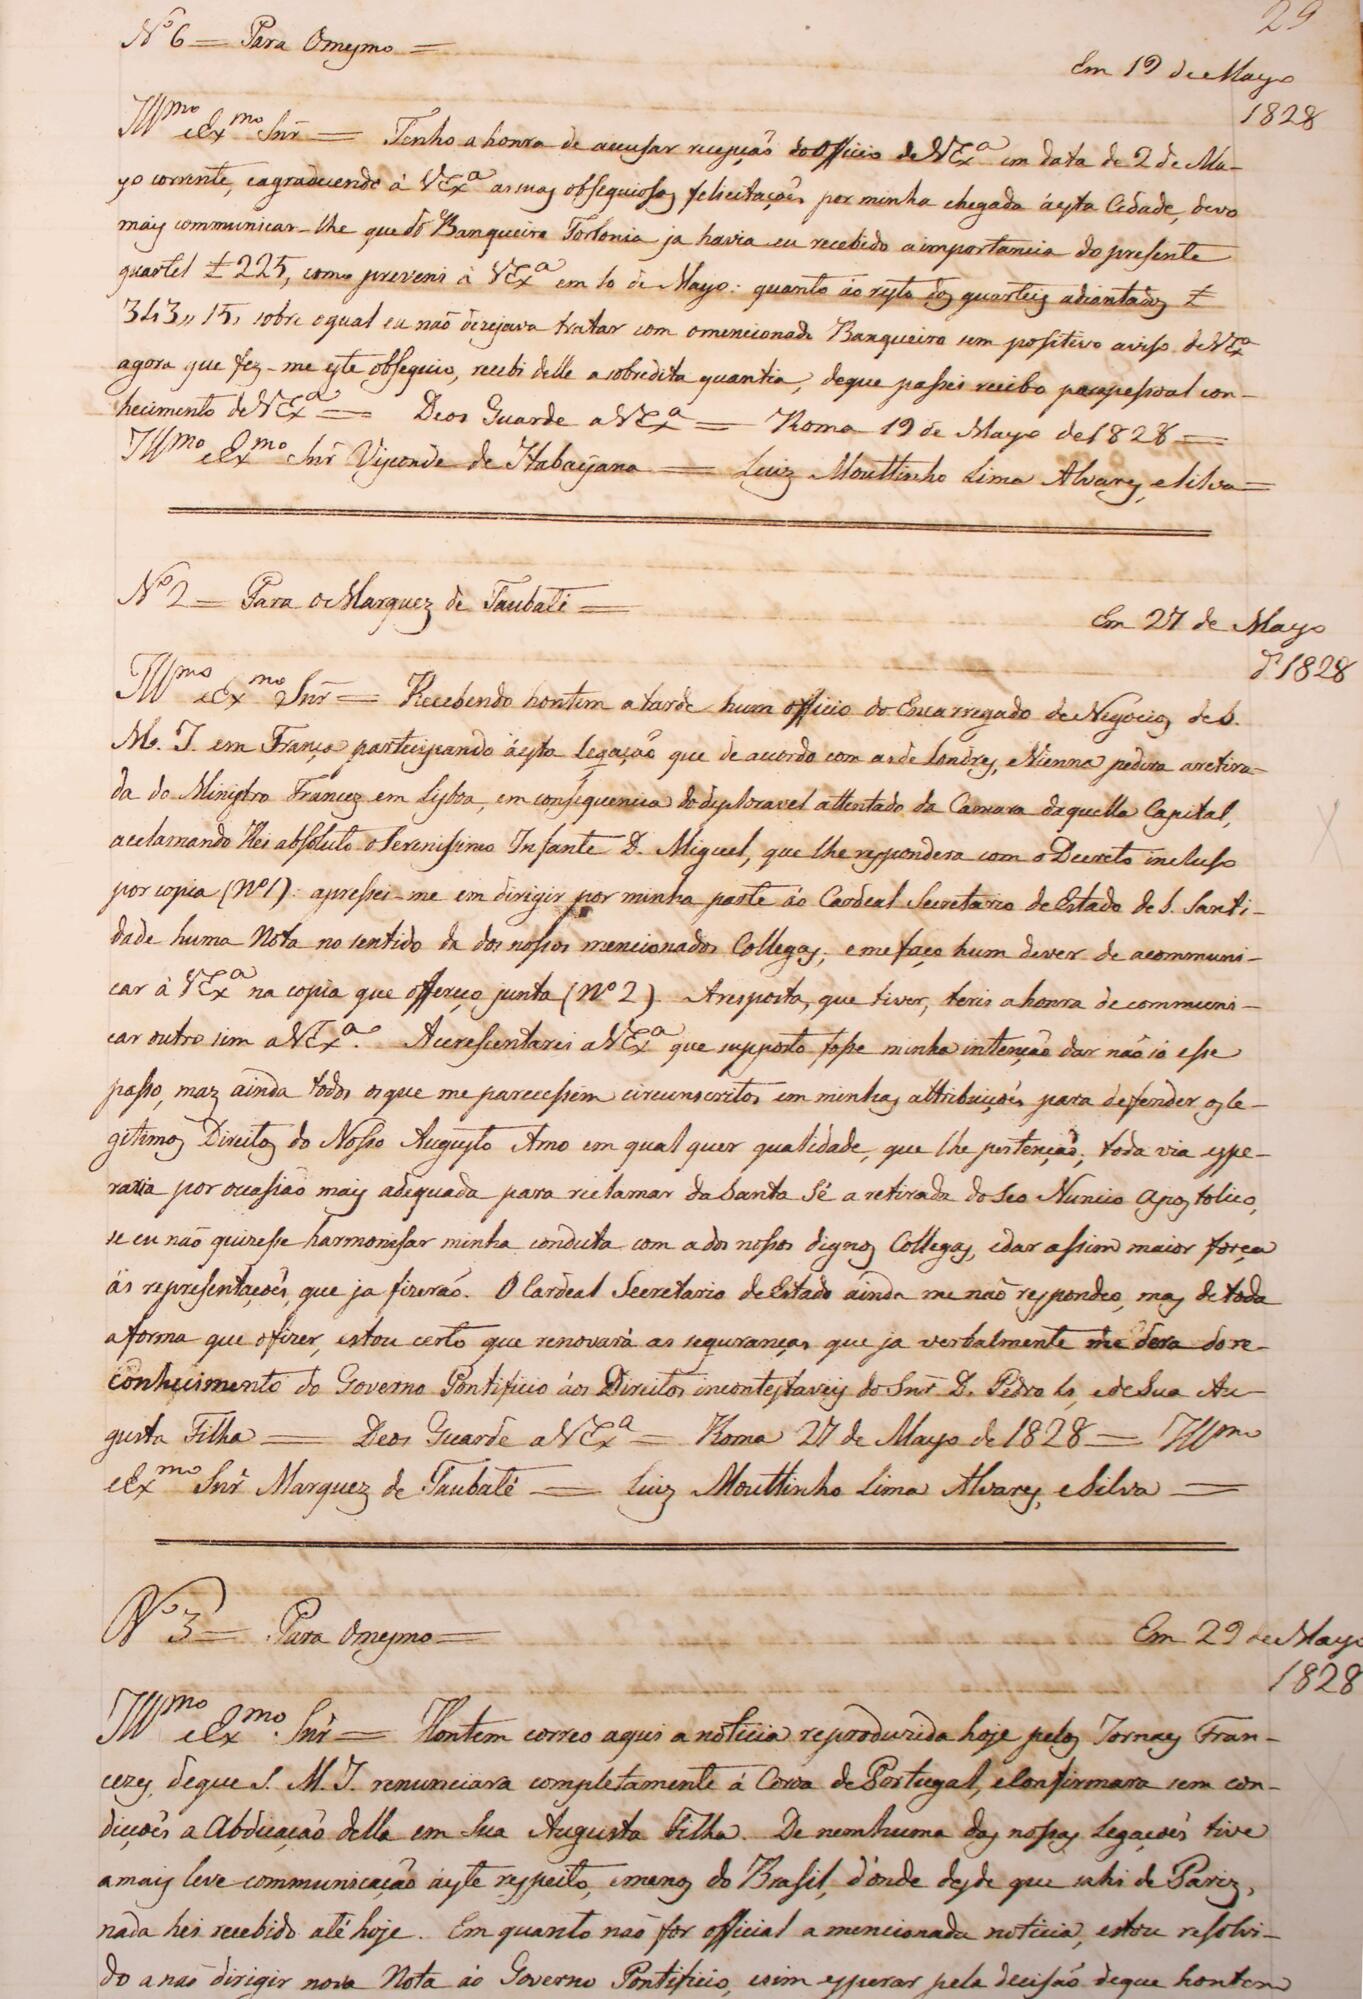 29
Nº 6 = Para Omesmo =
Em 19 de Mayo
1828
Illmo e Exmo Snr = Tenho a honra de accusar recepção do Officio de VExª em data de 2 de Ma-
yo corrente, e agradecendo á VExª as mas obsequiosas felicitaçoẽs por minha chegada áesta Cidade, devo
mais communicar-lhe que do Banqueiro Torlonia ja havia eu recebido a importancia do presente
quartel £ 225, como preveni á VExª em 10 de Mayo: quanto ao resto dos quarteis adiantados £
343,, 15, sobre o qual eu naõ desejava tratar com o mencionado Banqueiro sem positivo aviso de VExª
agora que fez-me este obsequio, recebi delle a sobredita quantia, de que passei recibo para pessoal con-
hecimento de VExª = Deos Guarde a VExª = Roma 19 de Mayo de 1828 =
Illmo e Exmo Snr Visconde de Itabayana = Luiz Mouttinho Lima Alvares, e Silva =
Nº 2 = Para o Marquez de Taubaté =
Em 27 de Mayo
d' 1828
Illmo e Exmo Snr = Recebendo hontem a tarde hum officio do Encarregado de Negocios de S.
M. I. em França participando áesta Legaçaõ que de acordo com as de Londres, e Vienna pedira a retira-
da do Ministro Francez em Lisboa, em consequencia do deploravel attentado da Camara daquella Capital,
acclamando Rei absoluto o Serenissimo Infante D. Miguel, que lhe respondera com o Decreto incluso
por copia (Nº 1): apressei-me em dirigir por minha parte áo Cardeal Secretario de Estado de S. Santi-
dade huma Nota no sentido da dos nossos mencionados Collegas; e me faço hum dever de a communi-
car á VExª na copia que offereço junta (Nº 2). A resposta, que tiver, terei a honra de communi-
car outro sim a VExª. Accrescentarei a VExª que supposto fosse minha intençaõ dar não só esse
passo, maz ainda todos os que me parecessem circunscritos em minhas attribuiçoẽs para defender os le-
gitimos Direitos do Nosso Augusto Amo em qual quer qualidade, que lhe pertençaõ; toda via espe-
raria por occasiaõ mais adequada para reclamar da Santa Sé a retirada do seo Nuncio Apostolico,
se eu não quizesse harmonisar minha conduta com a dos nossos dignos Collegas, e dar assim maior força
ás representaçoẽs, que ja fizeraõ. O Cardeal Secretario de Estado ainda me naõ respondeo, mas de toda
a forma que o fizer, estou certo que renovará as seguranças que ja verbalmente me dera do re-
conhecimento do Governo Pontificio áos Direitos incontestaveis do Snr D. Pedro 4, e de Sua Au-
gusta Filha = Deos Guarde a VExª = Roma 27 de Mayo de 1828 = Illmo
e Exmo Snr Marquez de Taubaté = Luiz Mouttinho Lima Alvares, e Silva =
Nº 3 = Para Omesmo =
Em 29 de Mayo
1828
Illmo e Exmo Snr = Hontem correo aqui a noticia reproduzida hoje pelos Jornaes Fran-
cezes, de que S. M. I. renunciara completamente á Coroa de Portugal, e Confirmara sem con-
diçoẽs a Abdicaçaõ della em Sua Augusta Filha. De nenhuma das nossas Legaçoẽs tive
a mais leve communicaçaõ áeste respeito, e menos do Brasil, d'onde desde que sahi de Pariz,
nada hei recebido até hoje. Em quanto naõ for official a mencionada noticia, estou resolvi-
do a naõ dirigir nova Nota áo Governo Pontificio, e sim esperar pela decisaõ de que hontem